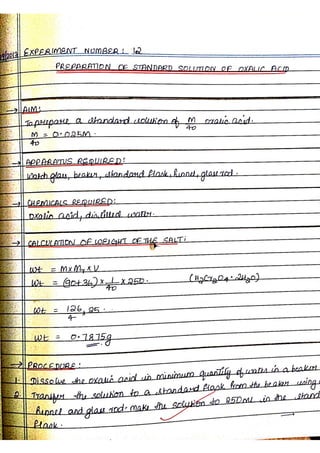 9/2017 EXPERIMENT NUMBER: 12
PREPARATION OF STANDARD SOLUTION OF OXALIC ACID
→ AIM:
To prepare a standard solution of M/40 oxalic acid.
M/40 = 0.025M.
→ APPARATUS REQUIRED:
Watch glass, beaker, standard flask, funnel, glass rod.
→ CHEMICALS REQUIRED:
Oxalic acid, distilled water.
→ CALCULATION OF WEIGHT OF THE SALT:
Wt = M×M₁×V
Wt = (90+36)×1/40×250. (H₂C₂O₄.2H₂O)
Wt = 126/4 × 25.
Wt = 0.7875g
→ PROCEDURE:
1. Dissolve the oxalic acid in minimum quantity of water in a beaker
2. Transfer the solution to a standard flask from the beaker using
funnel and glass rod- make the solution to 250mL in the stand
flask.